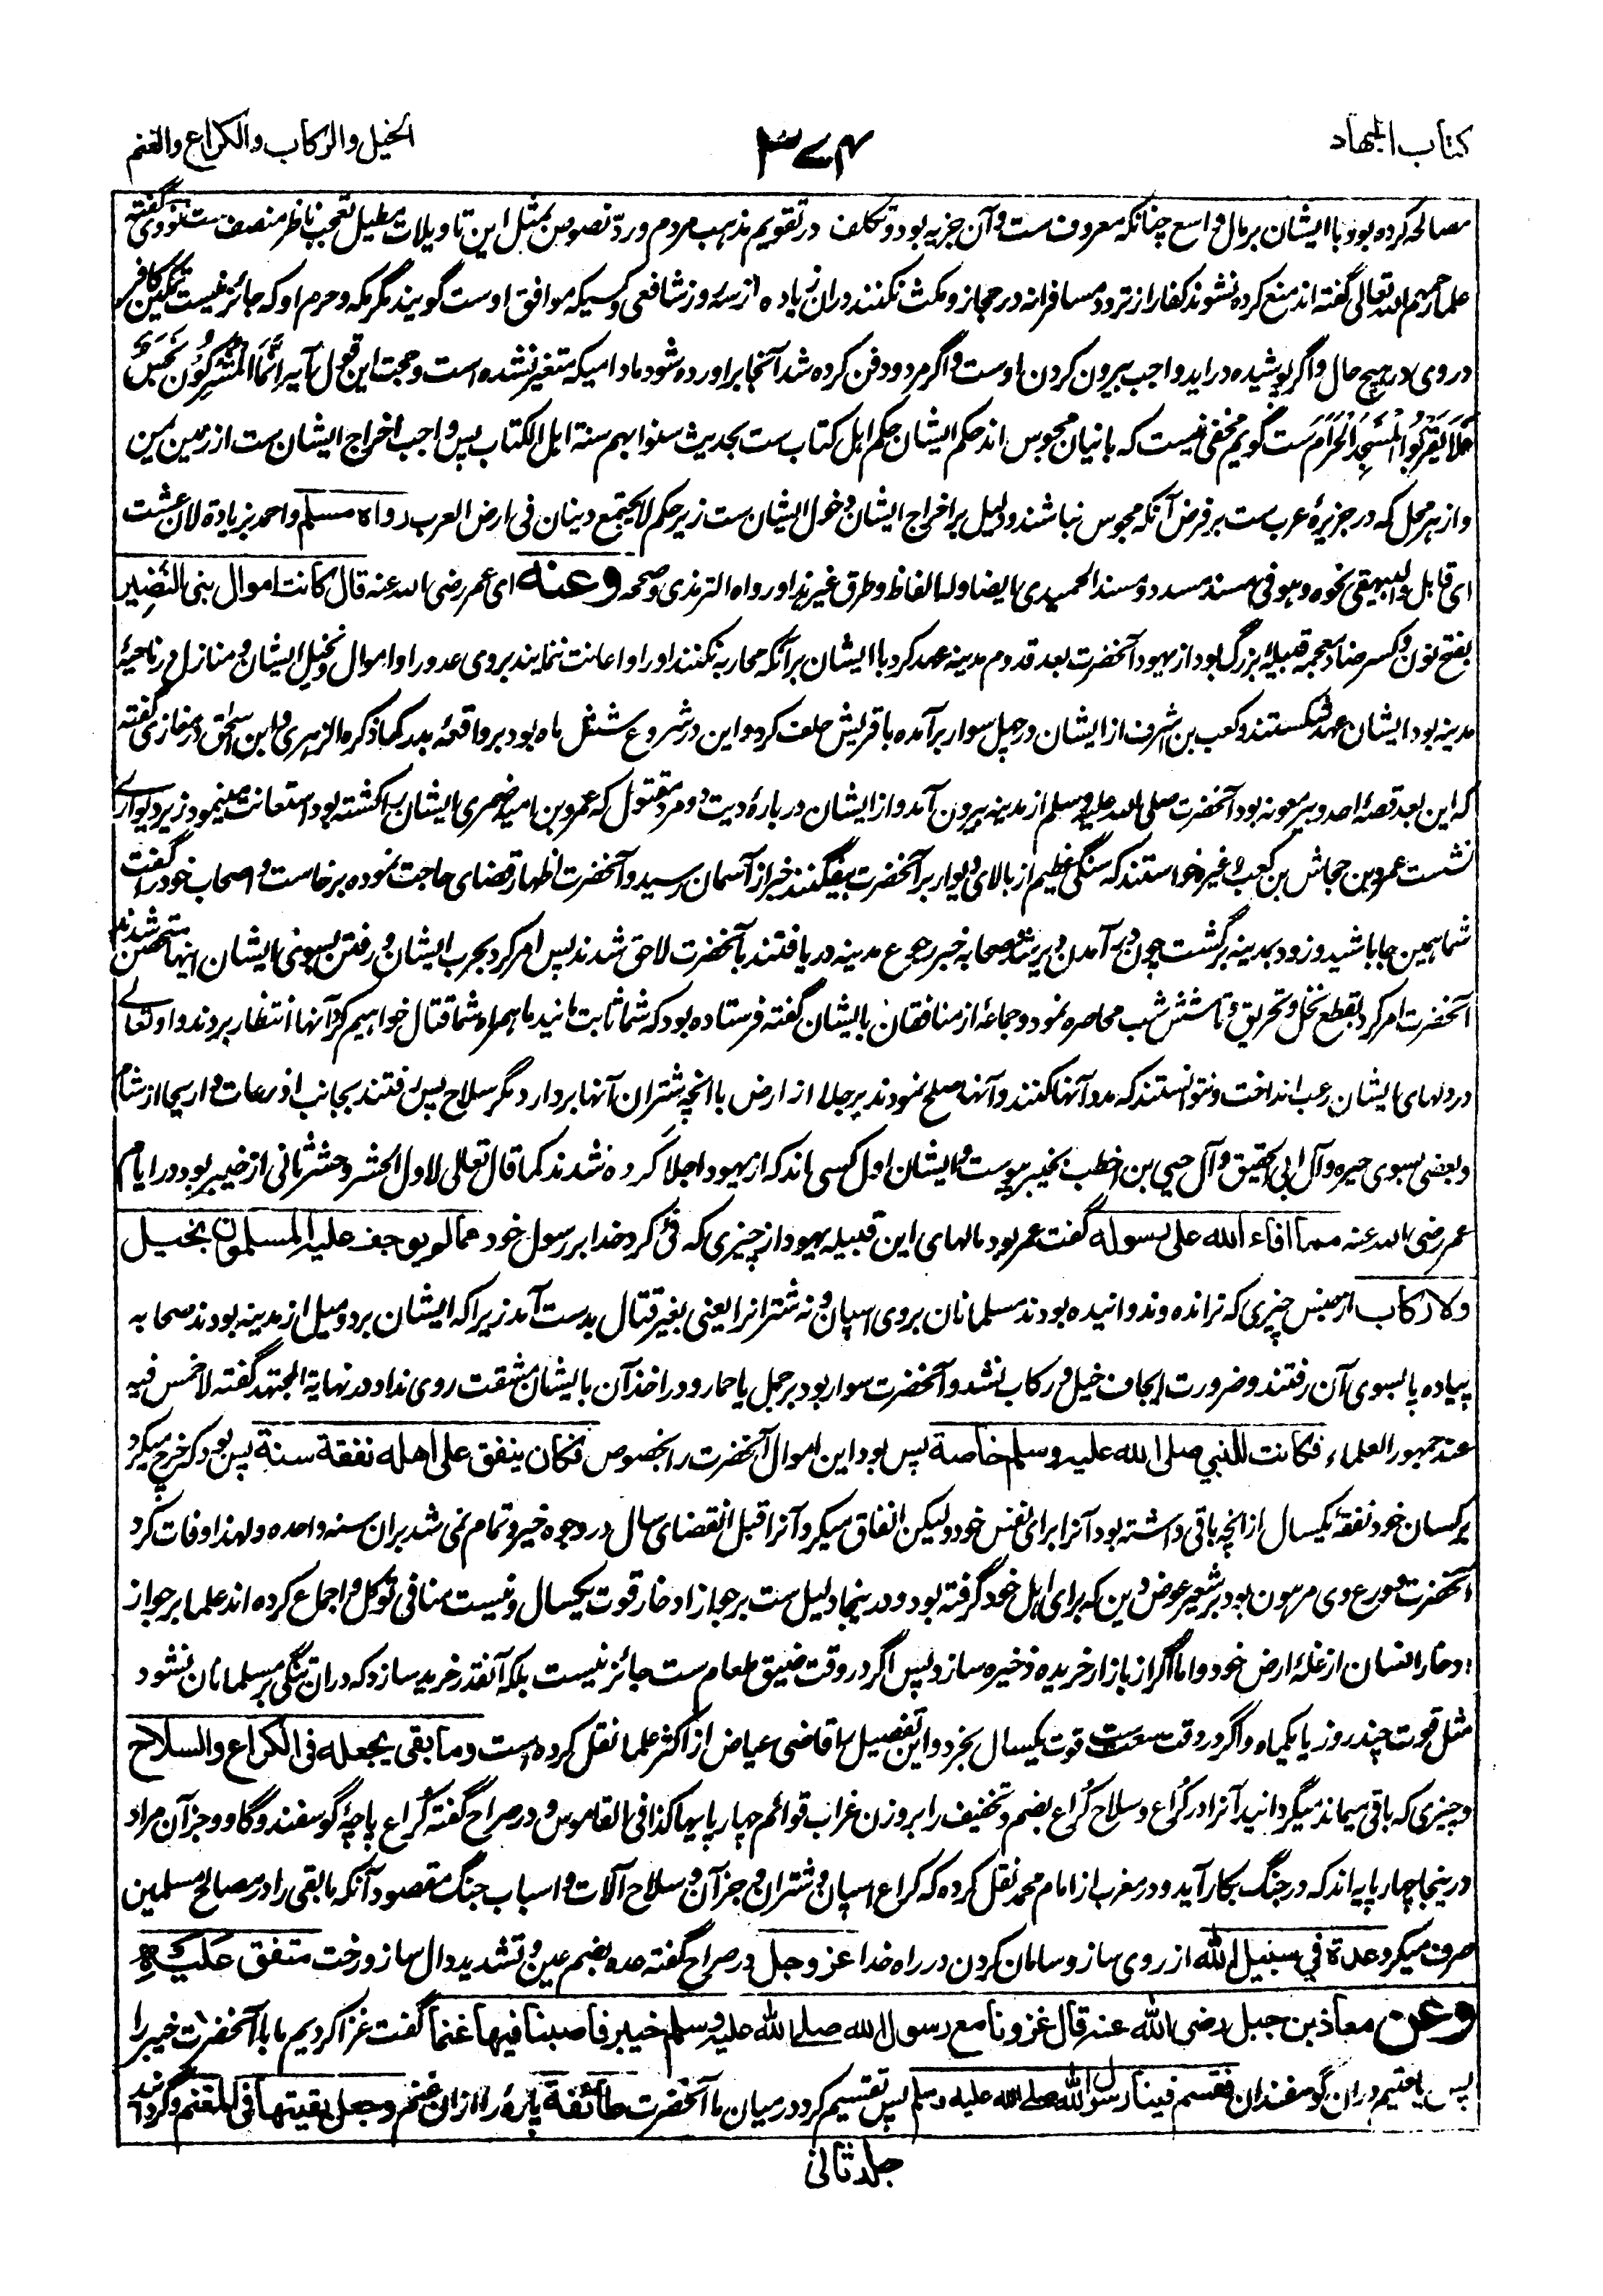 کتاب الجهاد
۳۷۴
الخیل والرکاب والکراع والغنم
مصالحه کرده بود با ایشان بر مال واسع چنانکه معروف ست و آن جزیه بود و تکلف در تقویم مذهب مردم و ردّ نصوص بمثل این تاویلات مطیل تعجب ناظر منصف ست نووی گفته
علما رحمهم الله تعالی گفته اند منع کرده نشوند کفار از تردد مسافرانه در حجاز و مکث نکنند دران زیاده از سه روز شافعی و کسیکه موافق اوست گویند مگر مکه و حرم او که جائز نیست تمکین کافر
در وی در هیچ حال و اگر پوشیده در اید واجب بیرون کردن اوست و اگر مرد و دفن کرده شد آنجا براورده شود مادامیکه متغیر نشده است و حجت این قول آیه إنما المشرکون نجس
فلا یقربوا المسجد الحرام ست گویم مخفی نیست که بانیان مجوس اند حکم ایشان حکم اهل کتاب ست بحدیث سنوا بهم سنة اهل الکتاب پس واجب اخراج ایشان ست از زمین یمن
و از هر محل که در جزیرهٔ عرب ست بر فرض آنکه مجوس نباشند و دلیل بر اخراج ایشان دخول ایشان ست زیر حکم لا یجتمع دینان فی ارض العرب رواه مسلم و احمد بزیادة لان عشت
ای قابل والبیهقی نحوه و هو فی مسند مسدد و مسند الحمیدی ایضا و لها الفاظ و طرق غیر هذا و رواه الترمذی و صححه وعنه ای عمر رضی الله عنه قال کانت اموال بنی النضیر
بفتح نون و کسر ضاد معجمه قبیلهٔ بزرگ بود از یهود آنحضرت بعد قدوم مدینه عهد کرد با ایشان بر آنکه محاربه نکنند او را و اعانت ننمایند بروی عدو را و اموال و نخیل ایشان و منازل در ناحیهٔ
مدینه بود ایشان عهد شکستند و کعب بن اشرف از ایشان در چهل سوار برآمده با قریش حلف کرد و این در شروع شش ماه بود بر واقعهٔ بدر کما ذکره الزهری و ابن اسحٰق در مغازی گفته
که این بعد قصهٔ احد و بیر معونه بود آنحضرت صلی الله علیه وسلم از مدینه بیرون آمد و از ایشان در بارهٔ دیت دو مرد مقتول که عمرو بن امیه ضمری ایشان را کشته بود استعانت مینمود زیر دیوارے
نشست عمرو بن جحاش بن کعب و غیره خواستند که سنگی عظیم از بالای دیوار بر آنحضرت بیفگنند خبر از آسمان رسید و آنحضرت اظهار قضای حاجت نموده برخاست و اصحاب خود را گفت
شما همین جا باشید و زود بمدینه برگشت چون دیر آمدن و پریشند صحابه خبر رجوع مدینه دریافتند بآنحضرت لاحق شدند پس امر کرد بحرب ایشان و رفتن بسوی ایشان اینها متحصن شدند
آنحضرت امر کرد بقطع نخل و تحریق و تا شش شب محاصره نمود و جماعهٔ از منافقان بایشان گفته فرستاده بود که شما ثابت مانید ما همراه شما قتال خواهیم کرد آنها انتظار بردند و او تعالے
در دلهای ایشان رعب انداخت و نتوانستند که مدد آنها کنند و آنها صلح نمودند بر جلا از ارض با آنچه شتران آنها بردارد مگر سلاح پس رفتند بجانب اذرعات و اریحا از شام
و بعضی بسوی حیره و آل ابی الحقیق و آل حیی بن اخطب بخیبر پیوست و ایشان اول کسی اند که از یهود اجلا کرده شدند کما قال تعالی لاول الحشر و حشر ثانی از خیبر بود در ایام
عمر رضی الله عنه مما افاء الله علی رسوله گفت عمر بود مالهای این قبیله یهود از چیزی که فئ کرد خدا بر رسول خود مما لم یوجف علیه المسلمون بخیل
ولا رکاب از جنس چیزی که نرانده و ندوانیده بودند مسلمانان بروی اسپان و نه شترانرا یعنی بغیر قتال بدست آمد زیرا که ایشان بر دو میل از مدینه بودند صحابه
پیاده پا بسوی آن رفتند و ضرورت ایجاف خیل و رکاب نشد و آنحضرت سوار بود بر جمل یا حمار و در اخذ آن بایشان مشقت روی نداد و در نهایة المجتهد گفته لا خمس فیه
عند جمهور العلماء فکانت للنبی صلی الله علیه وسلم خاصة پس بود این اموال آنحضرت را بخصوص فکان ینفق علی اهله نفقة سنة پس بود که خرچ میکرد
بر کسان خود نفقهٔ یکسال از آنچه باقی داشته بود آنرا برای نفس خود ولیکن انفاق میکرد آنرا قبل انقضای سال در وجوه خیر و تمام نمی شد بران سنه واحده و لهذا وفات کرد
آنحضرت و درع وی مرهون بود بشعیر عوض دین که برای اهل خود گرفته بود و درینجا دلیل ست بر جواز ادخار قوت یکسال و نیست منافی توکل و اجماع کرده اند علما بر جواز
ادخار انسان از غلهٔ ارض خود و اما اگر از بازار خریده ذخیره سازد پس اگر در وقت ضیق طعام ست جائز نیست بلکه آنقدر خرید سازد که دران تنگی بر مسلمانان نشود
مثل قوت چند روز یا یکماه و اگر در وقت سعت ست قوت یکسال بخرد و این تفصیل را قاضی عیاض از اکثر علما نقل کرده است وما بقی یجعله فی الکراع والسلاح
و چیزی که باقی میماند میگردانید آنرا در کراع و سلاح کُراع بضم و تخفیف را بروزن غراب قوائم چهار پایها کذا فی القاموس و در صراح گفته کُراع پاچهٔ گوسفند و گاو و جز آن مراد
درینجا چهار پایه اند که در جنگ بکار آید و در مغرب از امام محمد نقل کرده که کراع اسپان و شتران و جز آن و سلاح آلات و اسباب جنگ مقصود آنکه ما بقی را در مصالح مسلمین
صرف میکرد عدة فی سبیل الله از روی ساز و سامان کردن در راه خدا عز و جل در صراح گفته عده بضم عین و تشدید دال ساز و رخت متفق علیه
وعن معاذ بن جبل رضی الله عنه قال غزونا مع رسول الله صلی الله علیه وسلم خیبر فاصبنا فیها غنما گفت غزا کردیم ما با آنحضرت خیبر را
پس یافتیم دران گوسفندان فقسم فینا رسول الله صلی الله علیه وسلم پس تقسیم کرد در میان ما آنحضرت طائفة پارهٔ را ازان غنم وجعل بقیتها فی المغنم و گردانید
جلد ثانی